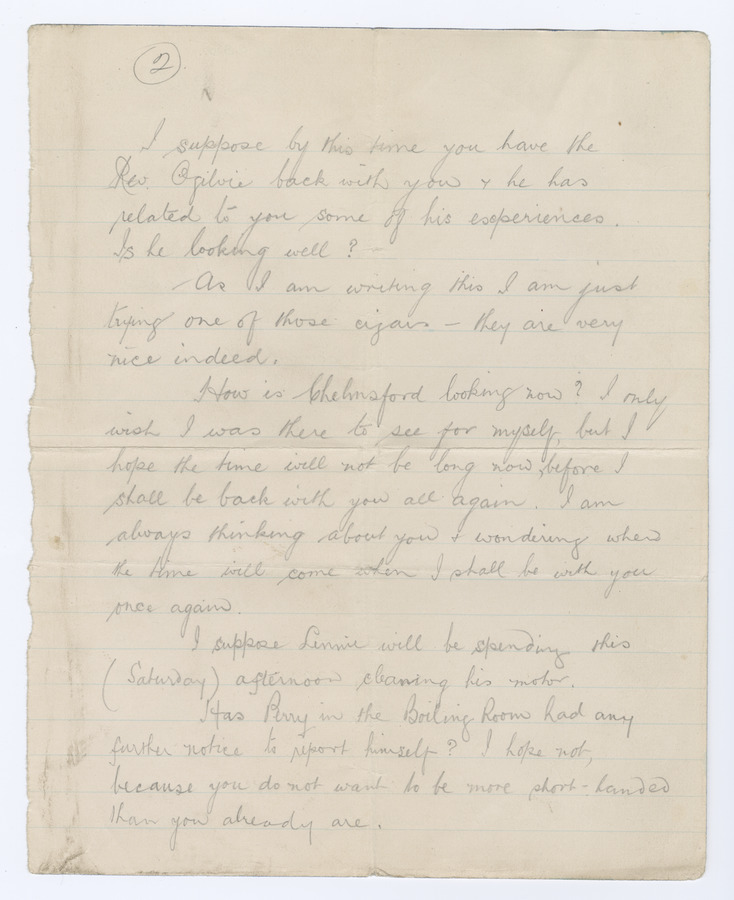 2
I suppose by this time you have the
Rev. Ogilvie back with you & he has
related to you some of his experiences.
Is he looking well? –
– As I am writing this I am just
trying one of those cigars – they are very
nice indeed.
How is Chelmsford looking now? I only
wish I was there to see for myself, but I
hope the time will not be long now, before I
shall be back with you all again. I am
always thinking about you & wondering when
the time will come when I shall be with you
once again.
I suppose Linnie will be spending this
(Saturday) afternoon cleaning his motor.
Has Perry in the Boiling Room had any
further notice to report himself? I hope not,
because you do not want to be more short-handed
than you already are.